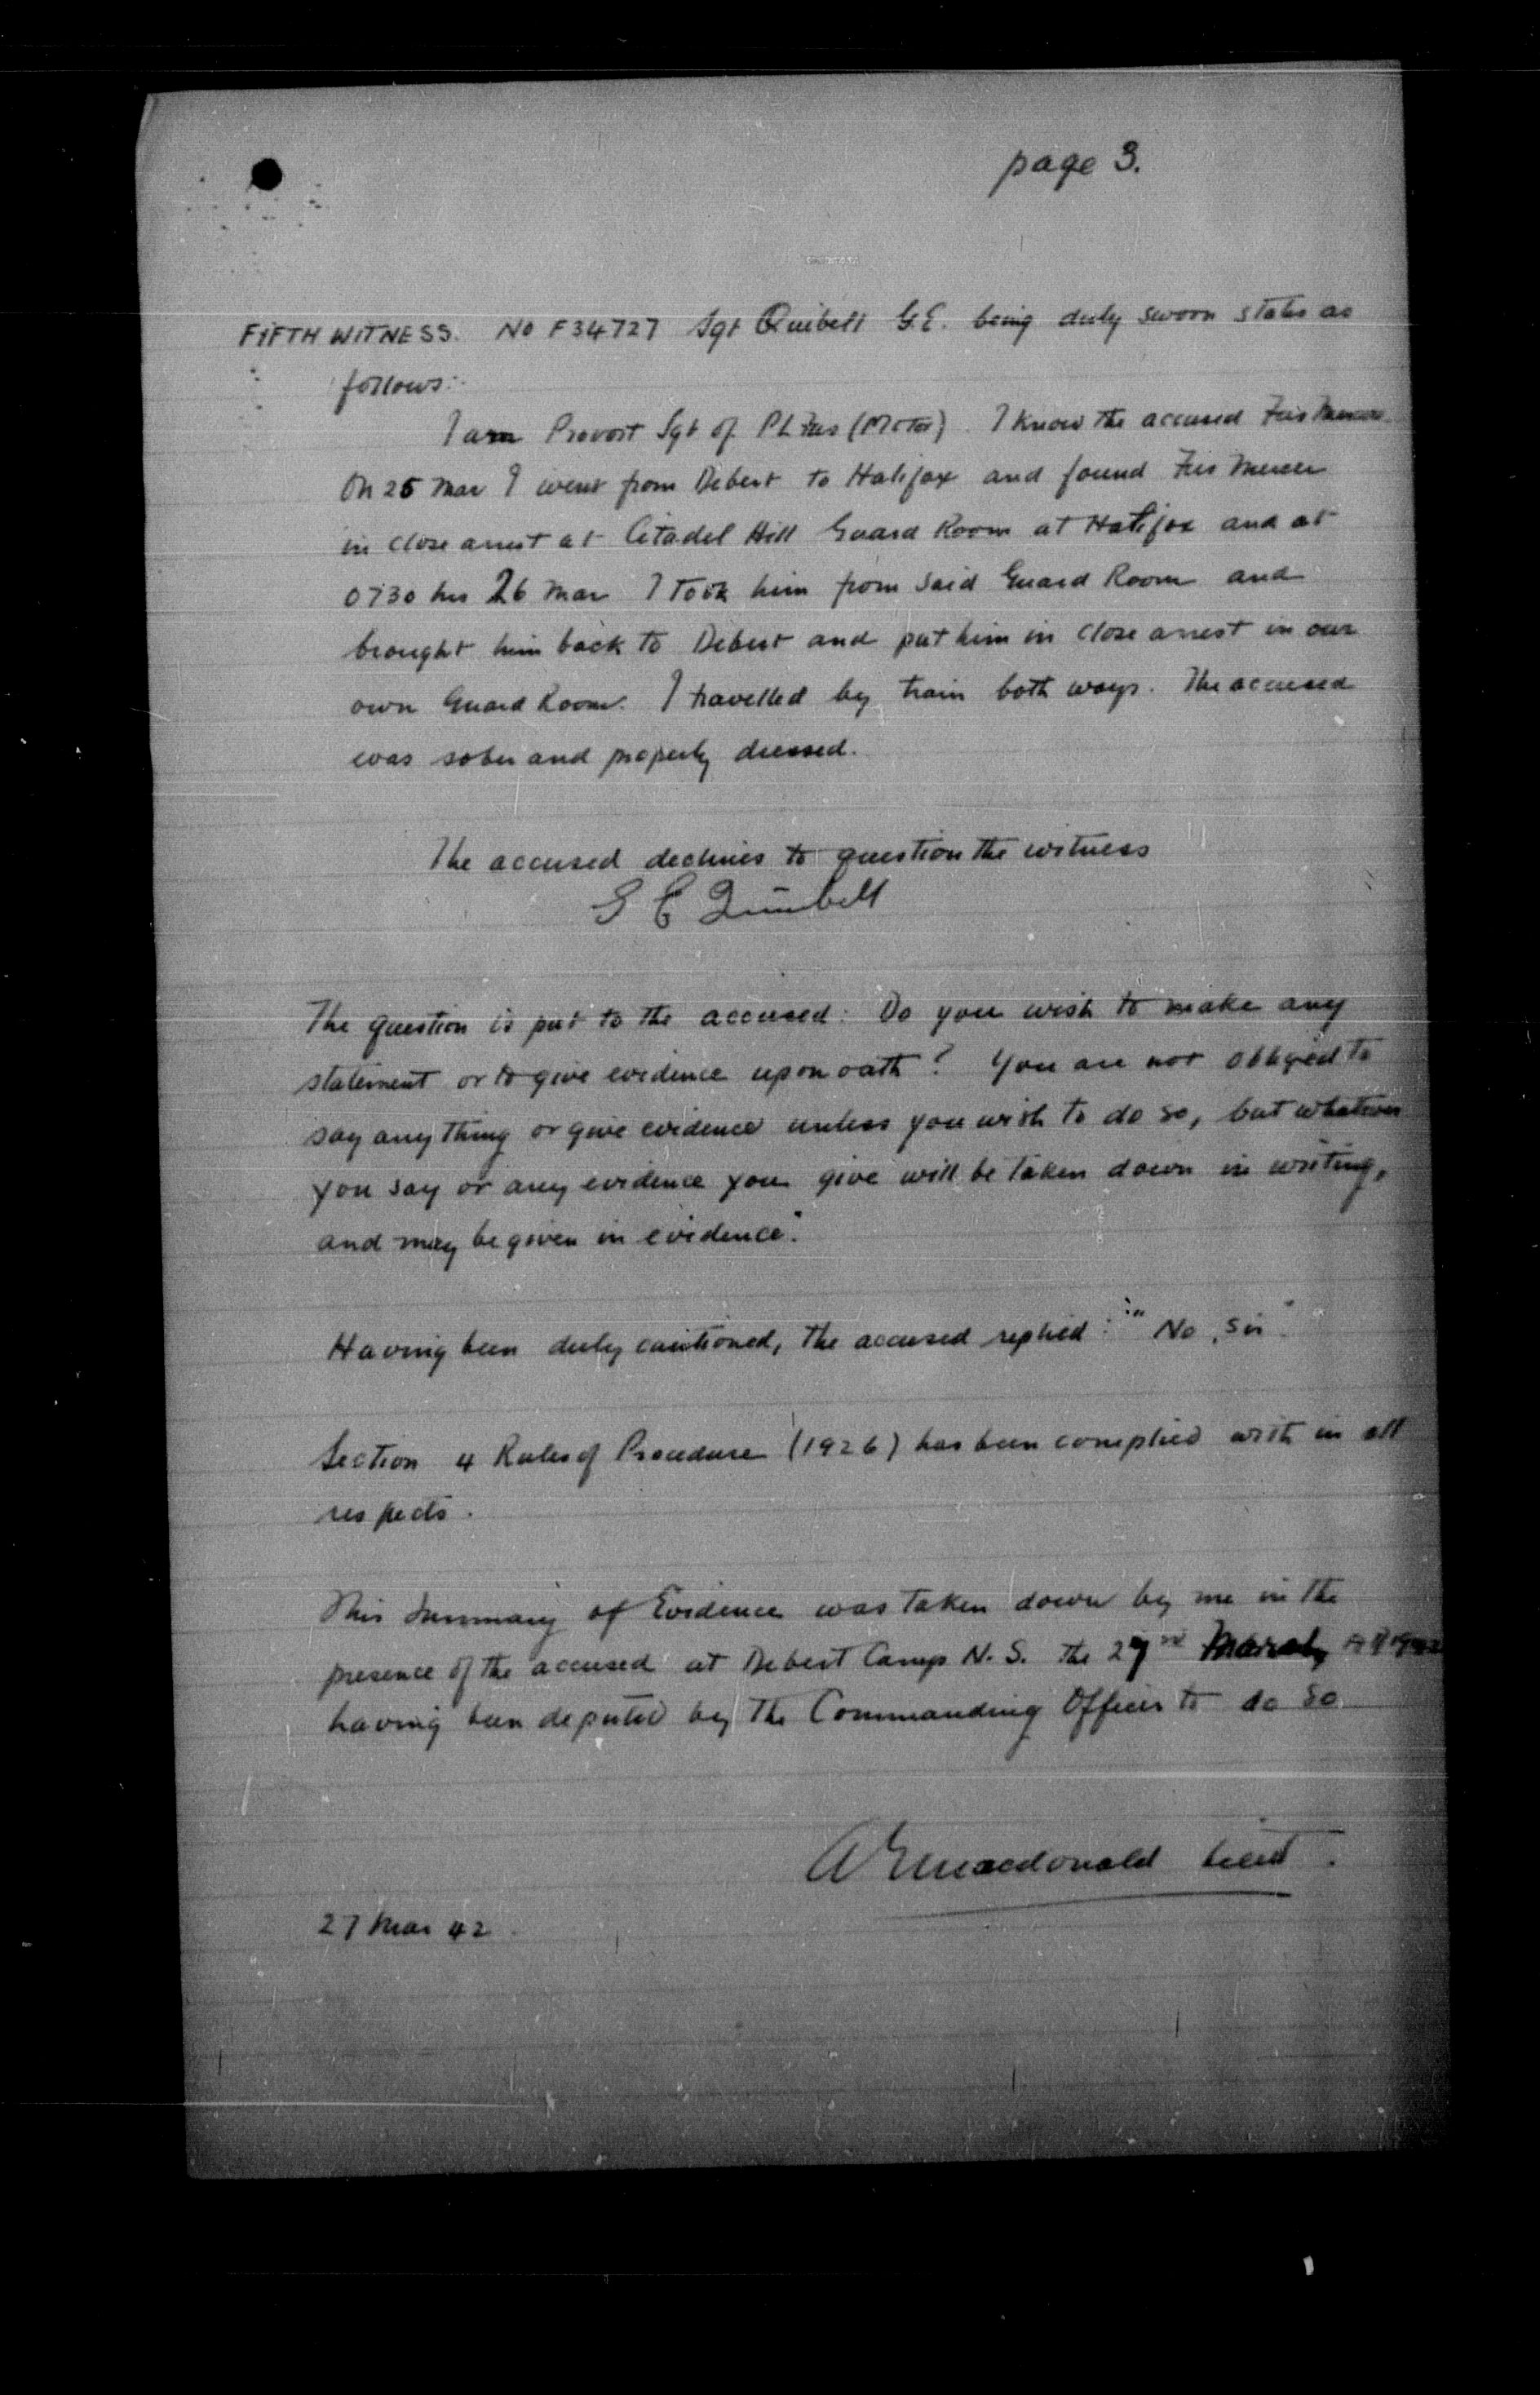 page 3.
FIFTH WITNESS. No F34727 Sgt Quibell G.E. being duly sworn states as
follows:
I am Provost Sgt of PL Fus (Motor). I know the accused Fus Mercer.
On 25 Mar I went from Debert to Halifax and found Fus Mercer
in close arrest at Citadel Hill Guard Room at Halifax and at
0730 hrs 26 Mar I took him from said Guard Room and
brought him back to Debert and put him in close arrest in our
own Guard Room. I travelled by train both ways. The accused
was sober and properly dressed.
The accused declines to question the witness
G E Quibell
The question is put to the accused: Do you wish to make any
statement or to give evidence upon oath? You are not obliged to
say anything or give evidence unless you wish to do so, but whatever
you say or any evidence you give will be taken down in writing,
and may be given in evidence."
Having been duly cautioned, the accused replied: "No, Sir"
Section 4 Rules of Procedure (1926) has been complied with in all
respects.
This Summary of Evidence was taken down by me in the
presence of the accused at Debert Camp N.S. the 27 March AD 1942
having been deputed by the Commanding Officer to do so
A E Macdonald Lieut.
27 Mar 42